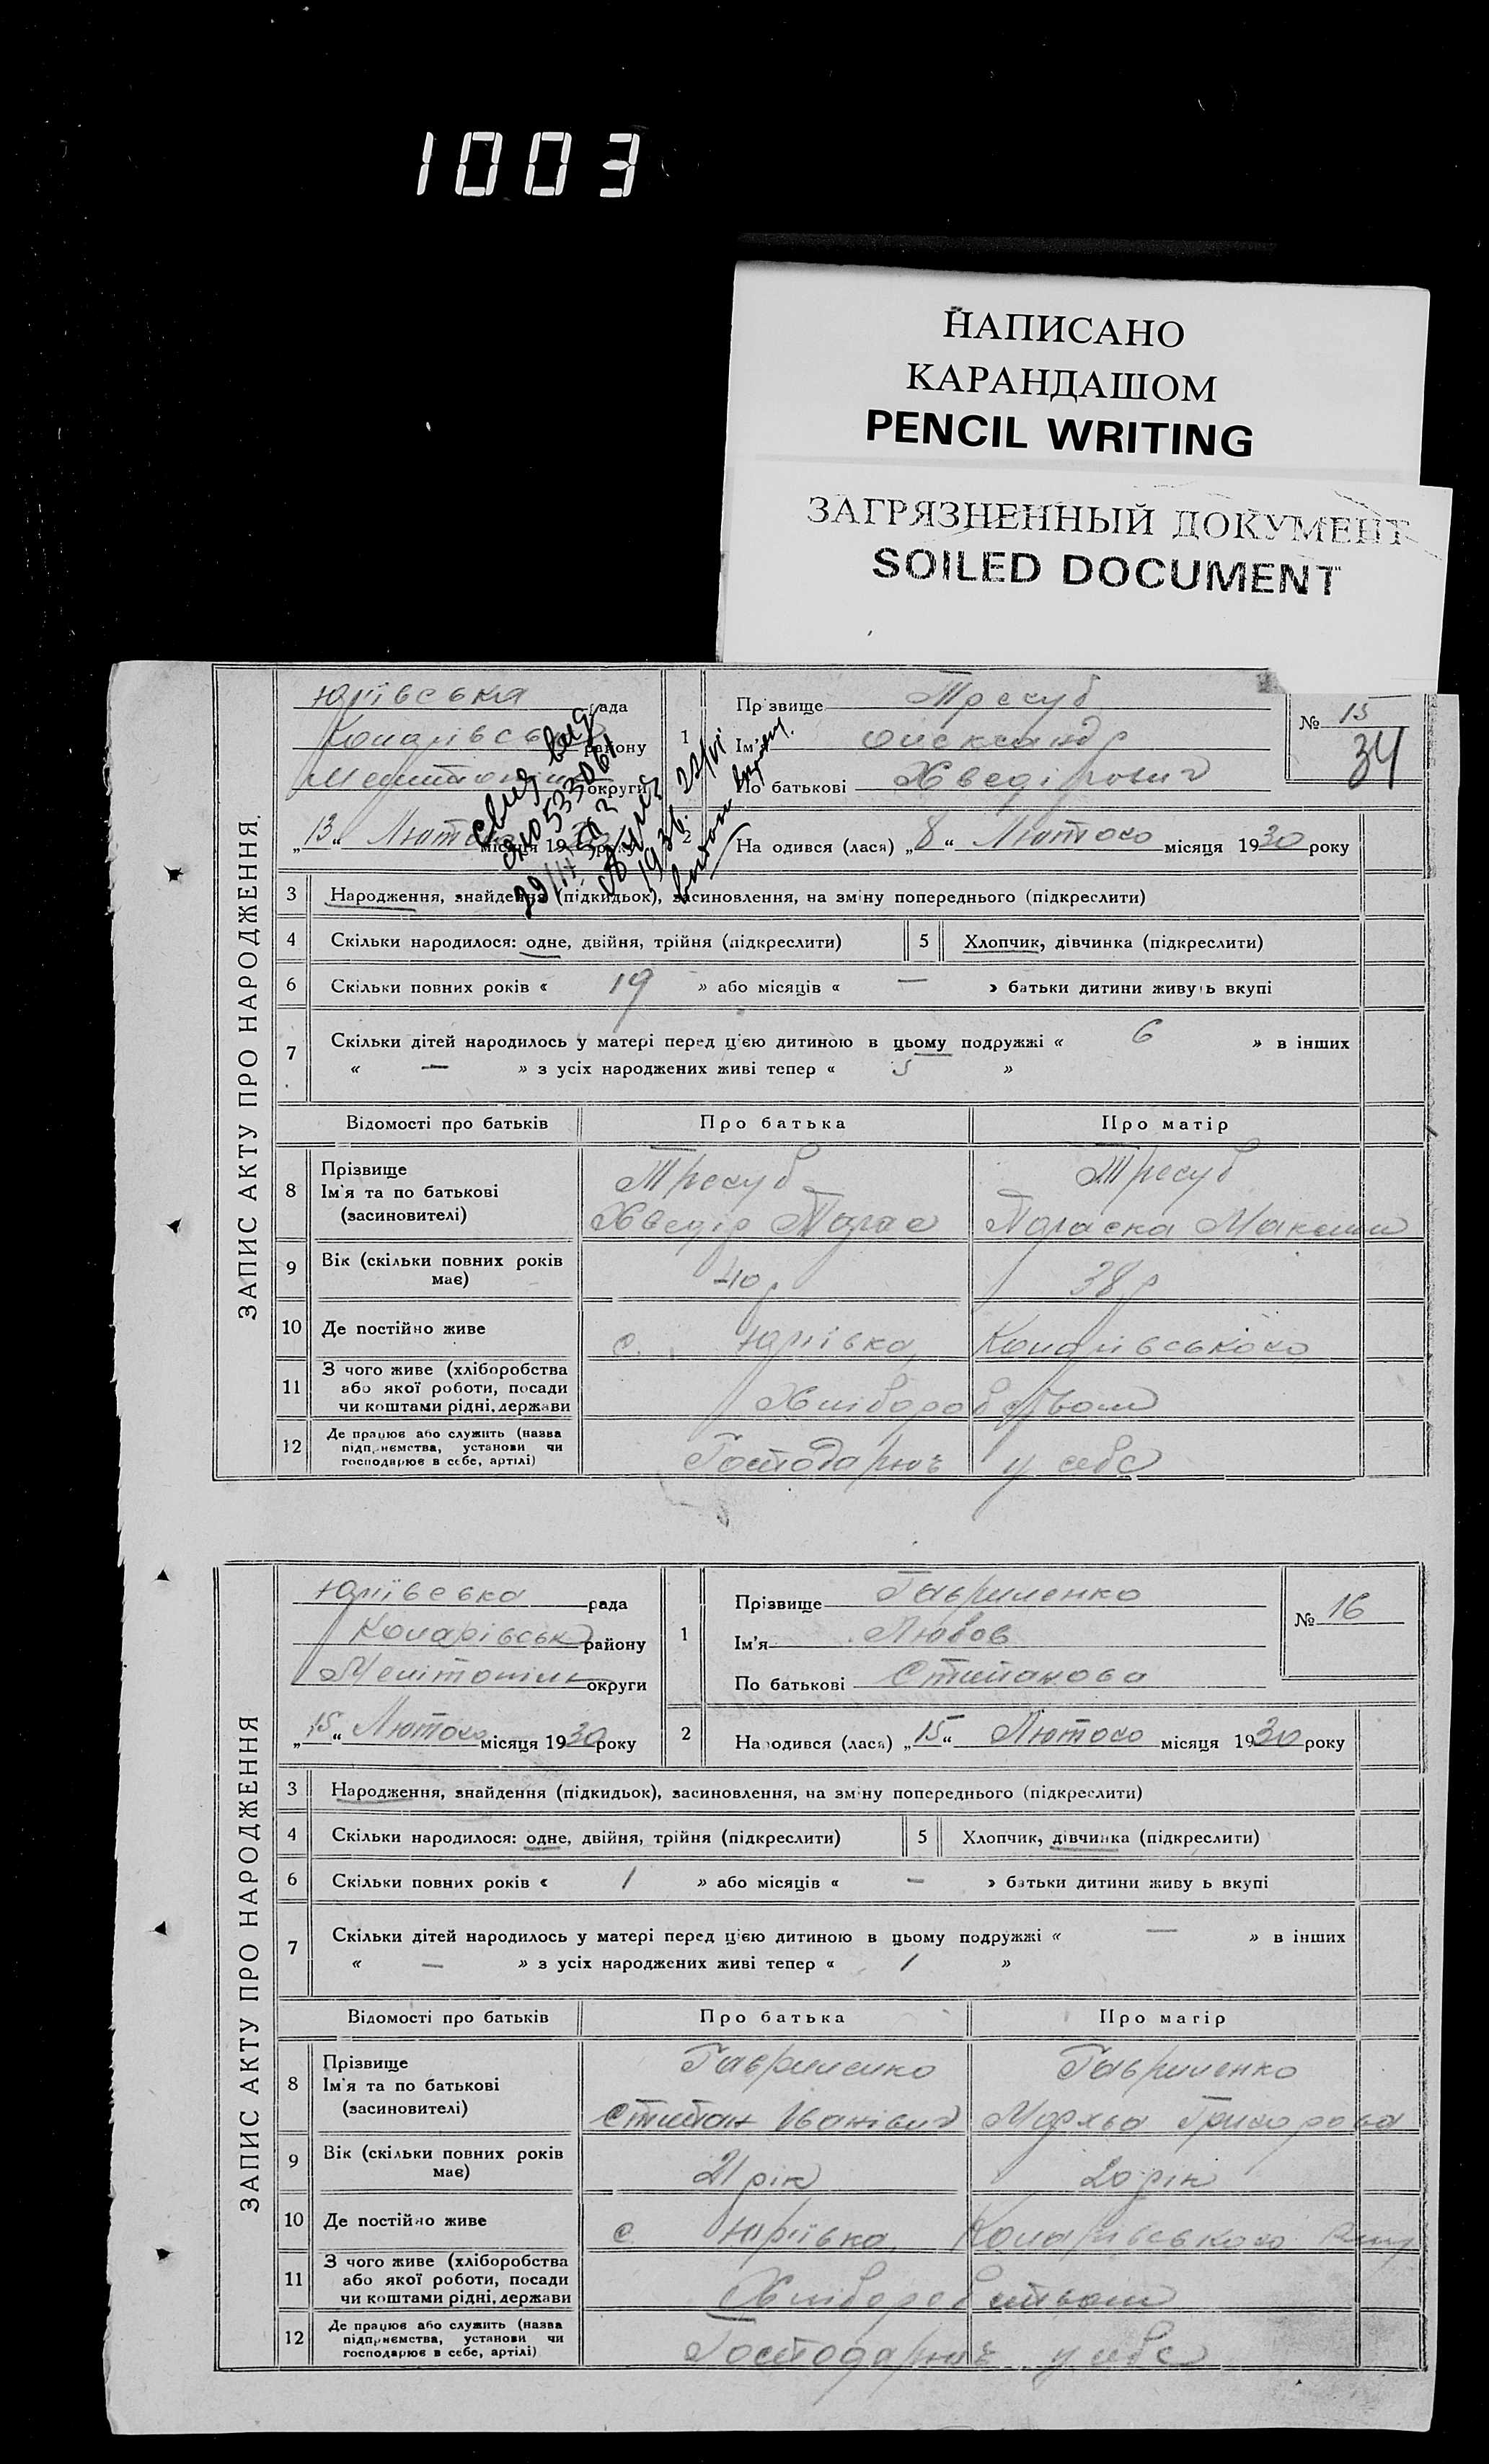 1003
НАПИСАНО
КАРАНДАШОМ
PENCIL WRITING
ЗАГРЯЗНЕННЫЙ ДОКУМЕНТ
SOILED DOCUMENT
ЗАПИС АКТУ ПРО НАРОДЖЕННЯ.
Юріївська рада
району
округи
„13“ Лютого місяця 19 року
1
Прізвище Трегуб
Ім'я Олександр
По батькові Хведірович
№ 15
34
2
На одився (лася) „8“ Лютого місяця 1930 року
533061
1936. 22/VI
3 Народження, знайдення (підкидьок), засиновлення, на зміну попереднього (підкреслити)
4 Скільки народилося: одне, двійня, трійня (підкреслити) 5 Хлопчик, дівчинка (підкреслити)
6 Скільки повних років « 19 » або місяців « — » батьки дитини живуть вкупі
7 Скільки дітей народилось у матері перед цією дитиною в цьому подружжі « 6 » в інших
« — » з усіх народжених живі тепер « 5 »
Відомості про батьків Про батька Про матір
8 Прізвище
Ім'я та по батькові
(засновителі)
Трегуб Трегуб
Хведір Параска
9 Вік (скільки повних років
має) 40 р 38 р
10 Де постійно живе с. Юріївка,
11 З чого живе (хліборобства
або якої роботи, посади
чи коштами рідні, держави
Хліборобством
12 Де працює або служить (назва
підприємства, установи чи
господарює в себе, артілі)
Господарює у себе
ЗАПИС АКТУ ПРО НАРОДЖЕННЯ
Юріївська рада
району
округи
„15“ Лютого місяця 1930 року
1
Прізвище Гавриленко
Ім'я Любов
По батькові Стипанова
№ 16
2
Народився (лася) „15“ Лютого місяця 1930 року
3 Народження, знайдення (підкидьок), засиновлення, на зміну попереднього (підкреслити)
4 Скільки народилося: одне, двійня, трійня (підкреслити) 5 Хлопчик, дівчинка (підкреслити)
6 Скільки повних років « 1 » або місяців « — » батьки дитини живу ь вкупі
7 Скільки дітей народилось у матері перед цією дитиною в цьому подружжі « — » в інших
« — » з усіх народжених живі тепер « 1 »
Відомості про батьків Про батька Про матір
8 Прізвище
Ім'я та по батькові
(засиновителі)
Гавриленко Гавриленко
Стипан Іванівич Григорова
9 Вік (скільки повних років
має) 21 рік 20 рік
10 Де постійно живе с. Юріївка,
11 З чого живе (хліборобства
або якої роботи, посади
чи коштами рідні, держави
Хліборобством
12 Де працює або служить (назва
підприємства, установи чи
господарює в себе, артілі)
Господарює у себе